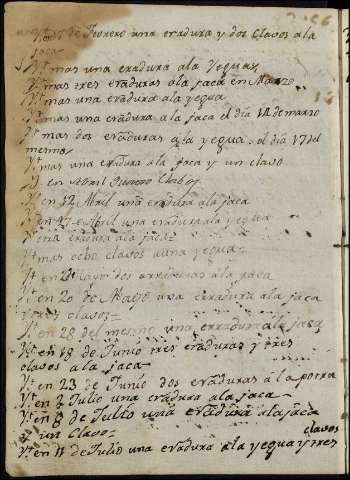 de Febrero una eradura y dos Clavos a la
jaca
Yt mas una eradura ala Yegua
Yt mas tres eraduras ala jaca en Marzo
Yt mas una eradura ala yegua
Yt mas una eradura ala jaca el dia 14 de marzo
Yt mas dos eraduras ala yegua el dia 17 del
mesmo
Yt mas una eradura ala jaca y un clavo
Yt en
Yt en 12 Abril una eradura ala jaca
Yt en 27 de Abril una eradura ala yegua
una eradura ala jaca
Yt mas ocho clavos auna yegua
Yt en dos ala jaca
Yt en 20 de Mayo una erradura ala jaca
y tres clavos
Yt en 28 del mesmo una erradura ala jaca
Yt en 19 de Junio tres eraduras y tres
clavos ala jaca
Yt en 23 de Junio dos eraduras ala potra
Yt en 2 Julio una eradura ala jaca
Yt en 8 de Julio una eradura ala jaca
un Clavo
clavos
Yt en 11 de Julio una eradura ala yegua y tres